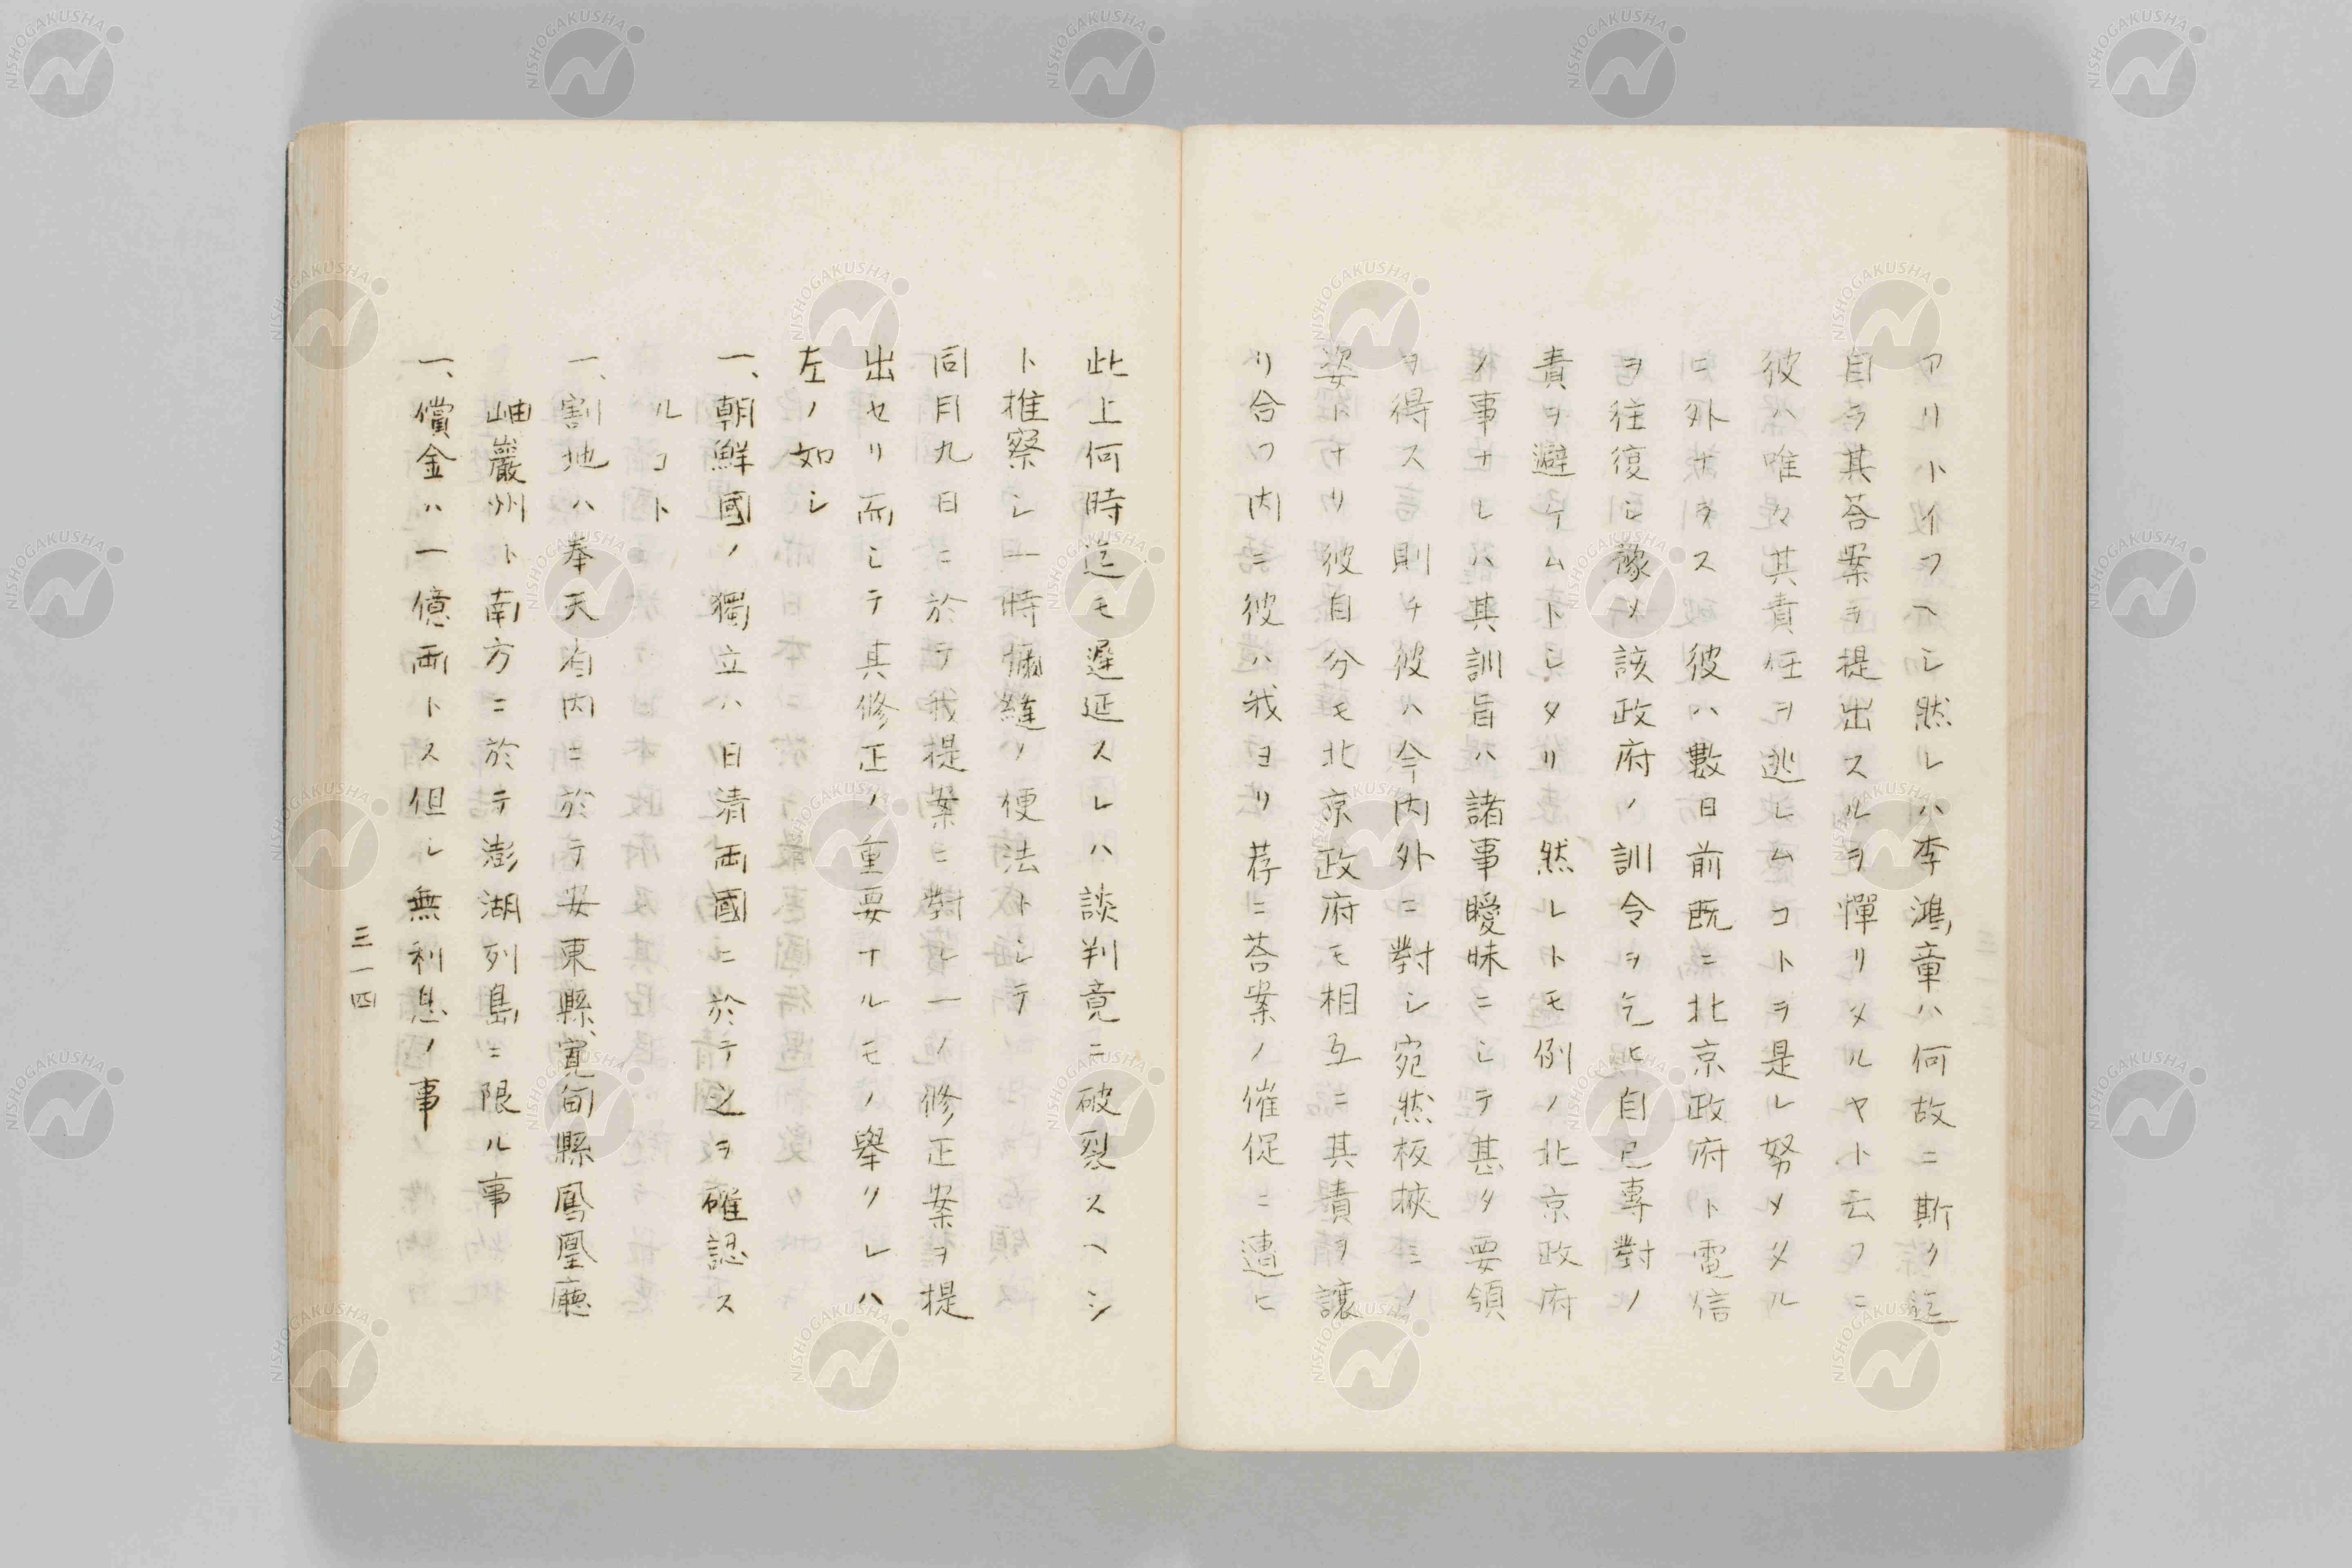 アリトイフヘシ然レハ李鴻章ハ何故ニ斯ク迄
自ラ其荅案ヲ提出スルヲ憚リタルヤト云フニ
彼ハ唯々其責任ヲ逃レムコトヲ是レ努メタル
ニ外ナラス彼ハ數日前既ニ北京政府ト電信
ヲ往復シ豫メ該政府ノ訓令ヲ乞ヒ自己專對ノ
責ヲ避ケムトシタリ然レトモ例ノ北京政府
ノ事ナレハ其訓旨ハ諸事曖昧ニシテ甚タ要領
ヲ得ス則チ彼ハ今内外ニ對シ宛然板挾ミノ
姿トナリ彼自分モ北京政府モ相互ニ其責ヲ讓
リ合フ内ニ彼ハ我ヨリ荐ニ荅案ノ催促ニ遭ヒ
此上何時迄モ遲延スレハ談判竟ニ破裂スヘシ
ト推察シ一時彌縫ノ便法トシテ
同月九日ニ於テ我提案ニ對シ一ノ修正案ヲ提
出セリ而シテ其修正ノ重要ナルモノ擧クレハ
左ノ如シ
一、朝鮮國ノ獨立ハ日清兩國ニ於テ之ヲ確認ス
ルコト
一、割地ハ奉天省内ニ於テ安東縣、寛甸縣鳳凰廳
岫巖州ト南方ニ於テ澎湖列島ニ限ル事
一、償金ハ一億兩トス但シ無利息ノ事
三一四
NISHOGAKUSHA